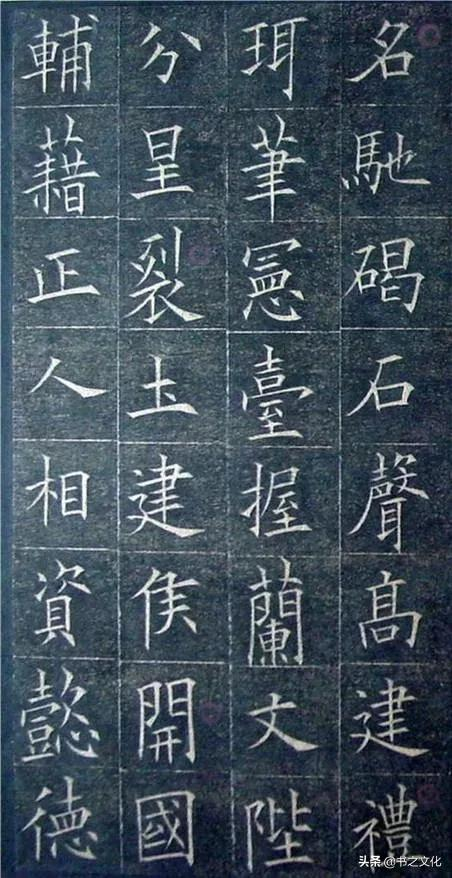 名馳碣石聲高建禮
珥筆憲臺握蘭文陛
分星裂土建侯開國
輔藉正人相資懿德
头条 @书之文化